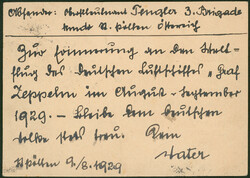 Absender: Oberstleutnant Tengler 3. Brigade
kmdt St. Pölten Österreich
Zur Erinnerung an den Welt-
flug des Deutschen Luftschiffes "Graf
Zeppelin im August - September
1929. - Bleibe dem Deutschen
Volke stets treu. Dein
Vater
St Pölten 9/8. 1929